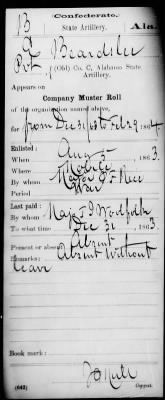 B Confederate. Ala.
State Artillery.
G Beardslee
Pvt (Old) Co. C, Alabama State
Artillery.
Appears on
Company Muster Roll
of the organization named above,
for from Dec 31/63 to Feb 29, 1864
Enlisted:
When Aug 5, 1863.
Where Mobile
By whom
Period War
Last paid:
By whom Maj
To what time Dec 31, 1863.
Present or absent Absent
Remarks: Absent Without
leave
Book mark:
(642) Copyist.